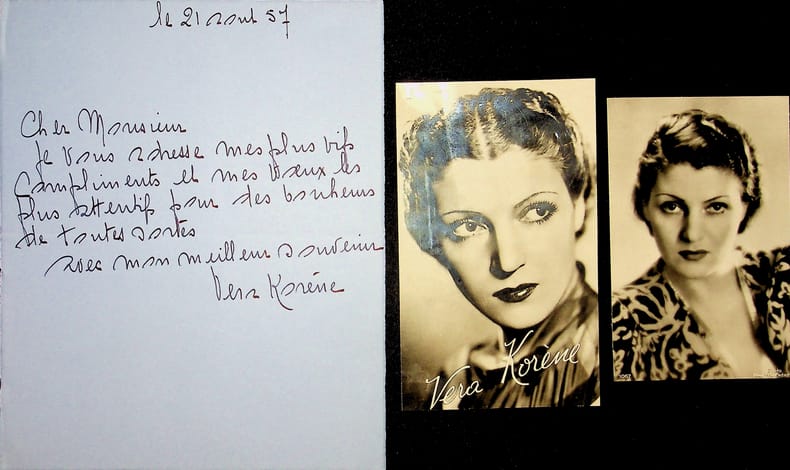 le 21 aout 57
Cher Monsieur
je vous adresse mes plus vifs
compliments et mes voeux les
plus attentifs pour des bonheurs
de toutes sortes
avec mon meilleur souvenir
Vera Korène
Vera Korène